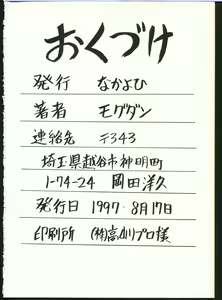 おくづけ
発行 なかよひ
著者 モグダン
連絡先 〒343
埼玉県越谷市神明町
1-74-24 岡田洋久
発行日 1997.8月17日
印刷所 (株)高山プロ撲